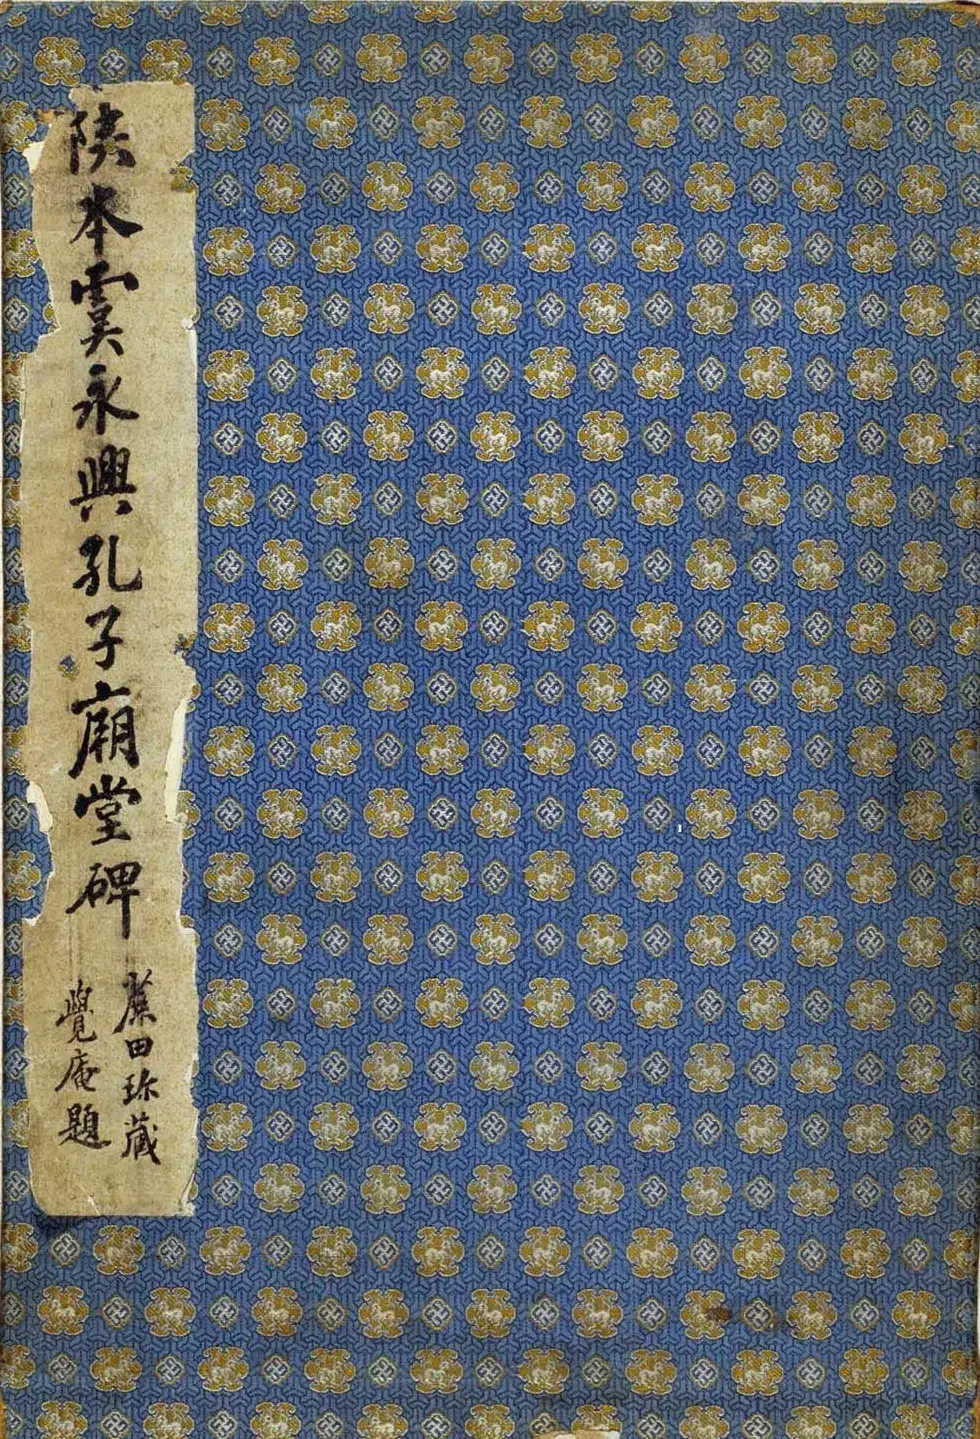 陕本虞永興孔子廟堂碑
藁田珎藏
覺庵題